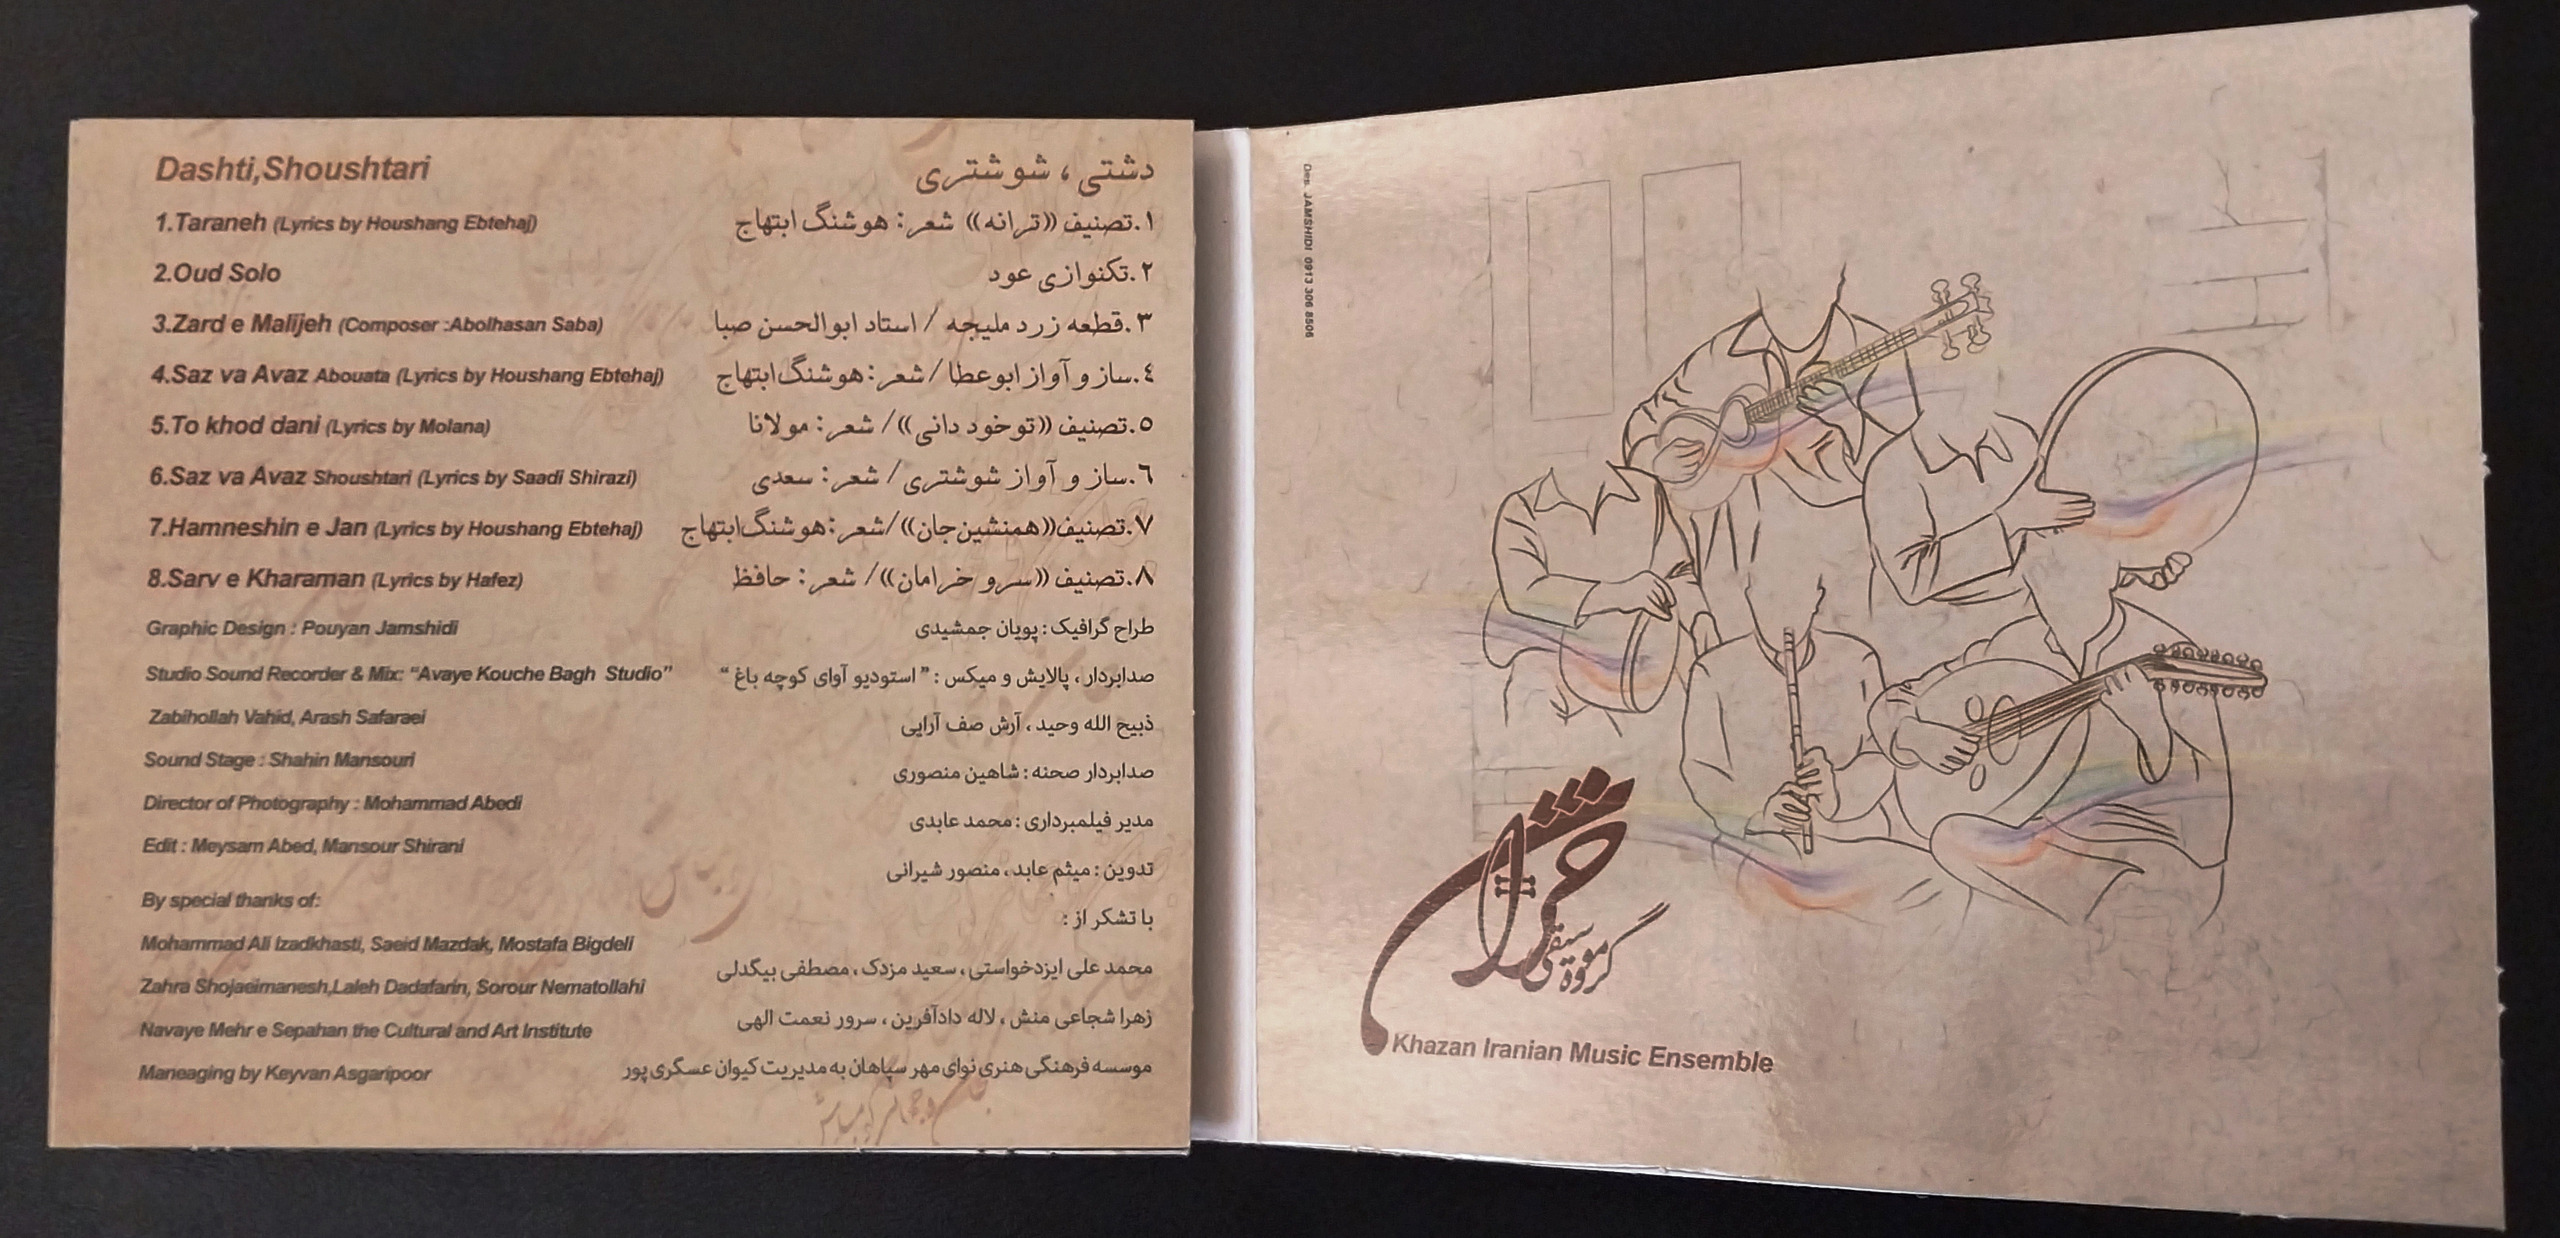 Dashti,Shoushtari
1.Taraneh (Lyrics by Houshang Ebtehaj)
2.Oud Solo
3.Zard e Malijeh (Composer :Abolhasan Saba)
4.Saz va Avaz Abouata (Lyrics by Houshang Ebtehaj)
5.To khod dani (Lyrics by Molana)
6.Saz va Avaz Shoushtari (Lyrics by Saadi Shirazi)
7.Hamneshin e Jan (Lyrics by Houshang Ebtehaj)
8.Sarv e Kharaman (Lyrics by Hafez)
Graphic Design : Pouyan Jamshidi
Studio Sound Recorder & Mix: "Avaye Kouche Bagh Studio"
Zabihollah Vahid, Arash Safaraei
Sound Stage : Shahin Mansouri
Director of Photography : Mohammad Abedi
Edit : Meysam Abed, Mansour Shirani
By special thanks of:
Mohammad Ali Izadkhasti, Saeid Mazdak, Mostafa Bigdeli
Zahra Shojaeimanesh,Laleh Dadafarin, Sorour Nematollahi
Navaye Mehr e Sepahan the Cultural and Art Institute
Maneaging by Keyvan Asgaripoor
دشتی ، شوشتری
۱.تصنیف ((ترانه)) شعر: هوشنگ ابتهاج
۲.تکنوازی عود
۳.قطعه زرد ملیجه / استاد ابوالحسن صبا
٤.ساز و آواز ابوعطا / شعر: هوشنگ ابتهاج
۵.تصنیف ((تو خود دانی))/ شعر: مولانا
٦.ساز و آواز شوشتری / شعر: سعدی
۷.تصنیف((همنشین جان))/شعر:هوشنگ ابتهاج
۸.تصنیف ((سرو خرامان))/ شعر: حافظ
طراح گرافیک : پویان جمشیدی
صدابردار ، پالایش و میکس : " استودیو آوای کوچه باغ "
ذبیح الله وحید ، آرش صف آرایی
صدابردار صحنه : شاهین منصوری
مدیر فیلمبرداری : محمد عابدی
تدوین : میثم عابد ، منصور شیرانی
با تشکر از :
محمد علی ایزدخواستی ، سعید مزدک ، مصطفی بیگدلی
زهرا شجاعی منش ، لاله دادآفرین ، سرور نعمت الهی
موسسه فرهنگی هنری نوای مهر سپاهان به مدیریت کیوان عسگری پور
Des. JAMSHIDI 0913 306 8506
خزان
گروه موسیقی
Khazan Iranian Music Ensemble